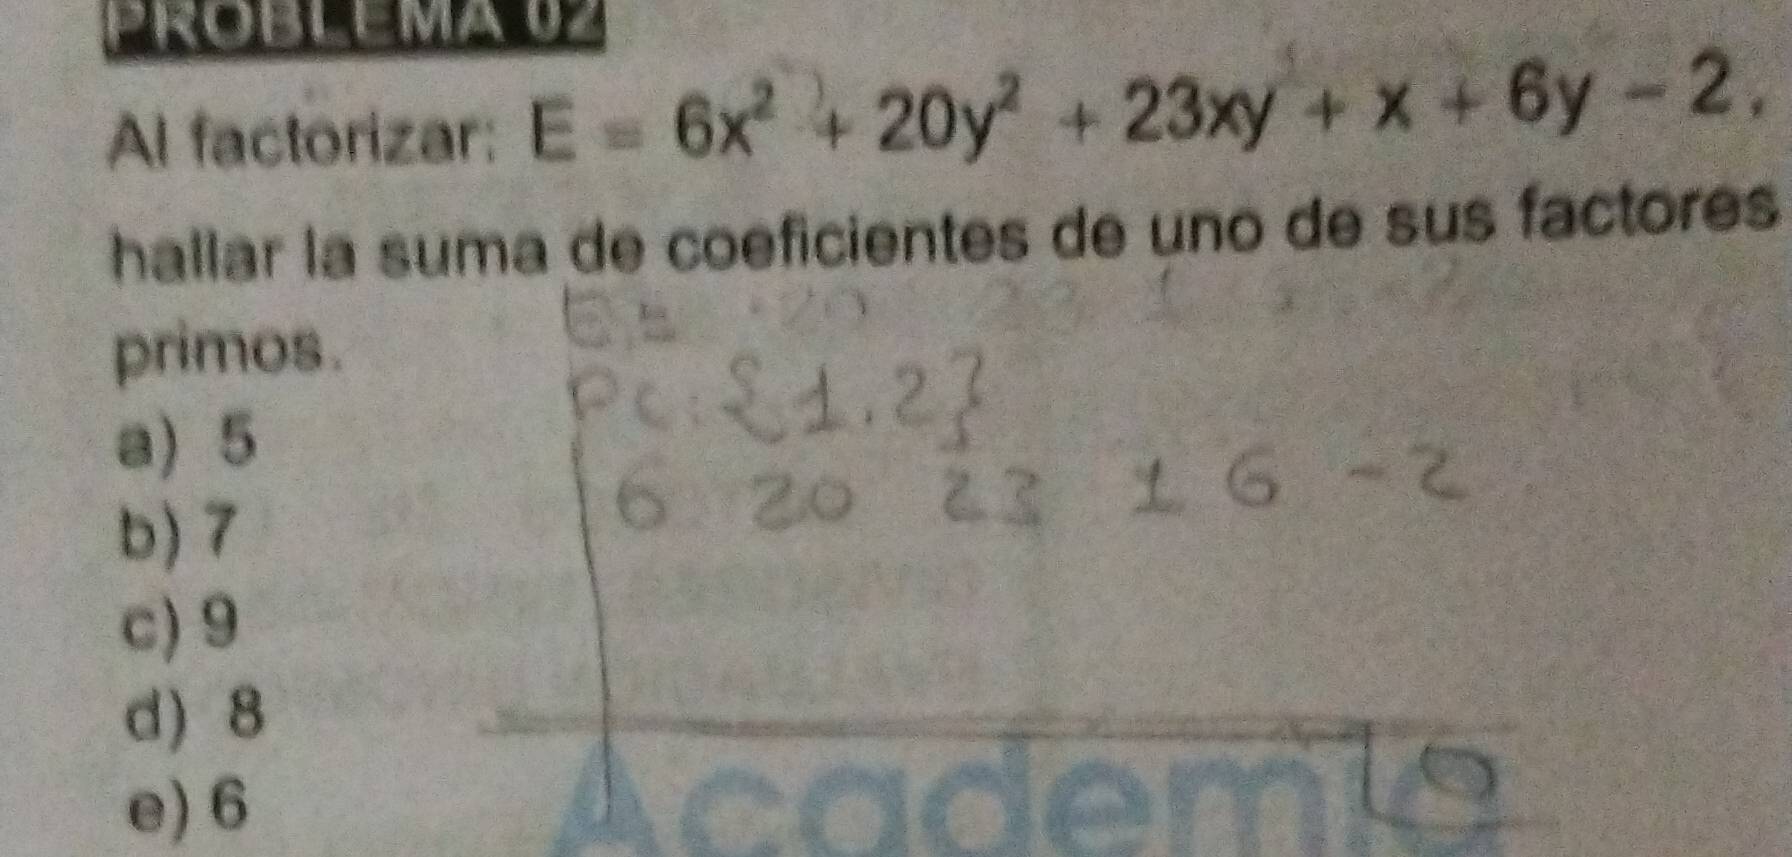 PROBLEMA 02
Al factorizar: E = 6x² + 20y² + 23xy + x + 6y - 2,
hallar la suma de coeficientes de uno de sus factores
primos.
a) 5
b) 7
c) 9
d) 8
e) 6
PC: {1,2}
6 20 23 1 6 -2
Academia